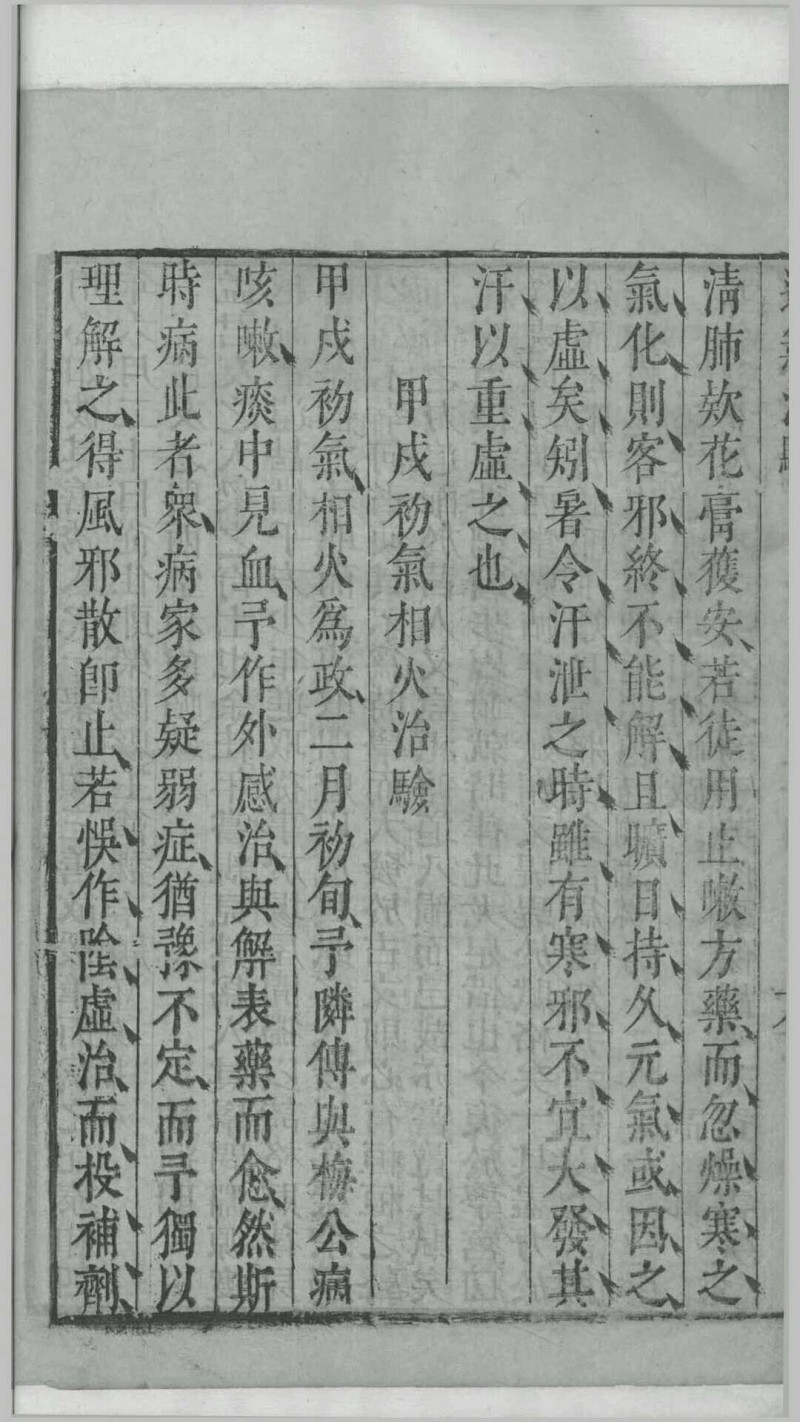 清肺欵花膏獲安、若徒用止嗽方藥、而忽燥寒之
氣化則客邪終不能解且曠日持久元氣或因之
以虛矣矧暑令汗泄之時雖有寒邪不宜大發其
汗以重虛之也
甲戍初氣相火治驗
甲戍初氣、相火爲政、二月初旬、予隣傳與梅公病
咳嗽、痰中見血、予作外感治、與解表藥而愈、然斯
時病此者衆、病家多疑弱症、猶豫不定、而予獨以
理解之、得風邪散卽止、若悞作陰虛治、而投補劑、